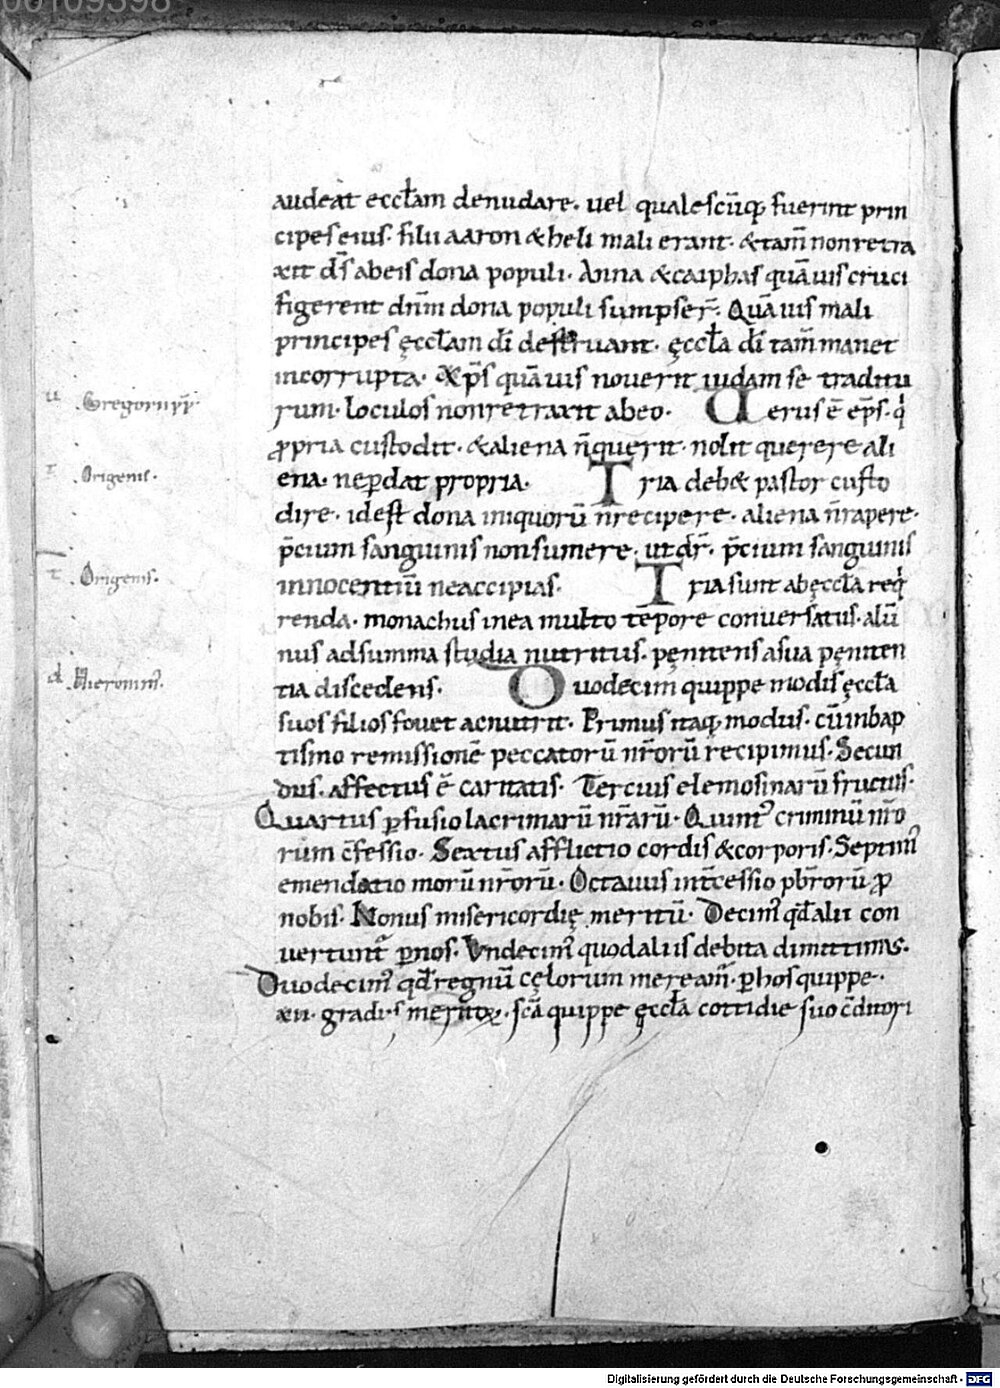 00109398
audeat eccl̄am denudare· uel qualescūq; fuerint prin
cipes eius· filii aaron & heli mali erant· & tam̄ non retra
xit d̄s ab eis dona populi· Anna & caiphas quāuis cruci
figerent dn̄m dona populi sumpser̄· Quāuis mali
principes ęccl̄am dī destruant· ęccl̄a dī tam̄ manet
incorrupta· & xp̄s quāuis nouerit iudam se traditu
u Gregorii
rum· loculos non retraxit ab eo· Uerus ē ep̄s· q
ꝓpria custodit· & aliena n̄ querit· nolit querere ali
T Origenis·
ena· ne ꝑdat propria· Tria deb& pastor custo
dire· id est dona iniquorū n̄ recipere· aliena n̄ rapere·
p̄cium sanguinis non sumere· ut dr̄· p̄cium sanguinis
T Origenis·
innocentiū ne accipias· Tria sunt ab ęccl̄a req
renda· monachus in ea multo tēpore conuersatus· alū
nus ad summa studia nutritus· pęnitens a sua pęniten
d Hieronimi·
tia discedens· Duodecim quippe modis ęccl̄a
suos filios fouet ac nutrit· Primus itaq; modus· cū in bap
tismo remissionē peccatorū nr̄orū recipimus· Secun
dus· affectus ē caritatis· Tercius elemosinarū fructus·
Quartus ꝑfusio lacrimarū nr̄arū· Quint᾽ criminū nr̄o
rum c̄fessio· Sextus afflictio cordis & corporis· Septim᾽
emendatio morū nr̄orū· Octauus int̄cessio pb̄rorū ꝓ
nobis· Nonus misericordię meritū· Decim᾽ qđ alii con
uertunt᾽ ꝑ nos· Undecim᾽ quod aliis debita dimittimus·
Duodecim᾽ qđ regnū cęlorum meream᾽· ꝑ hos quippe·
xii· gradus meritoꝝ· sc̄a quippe ęccl̄a cottidie suo c̄ditori
Digitalisierung gefördert durch die Deutsche Forschungsgemeinschaft - DFG